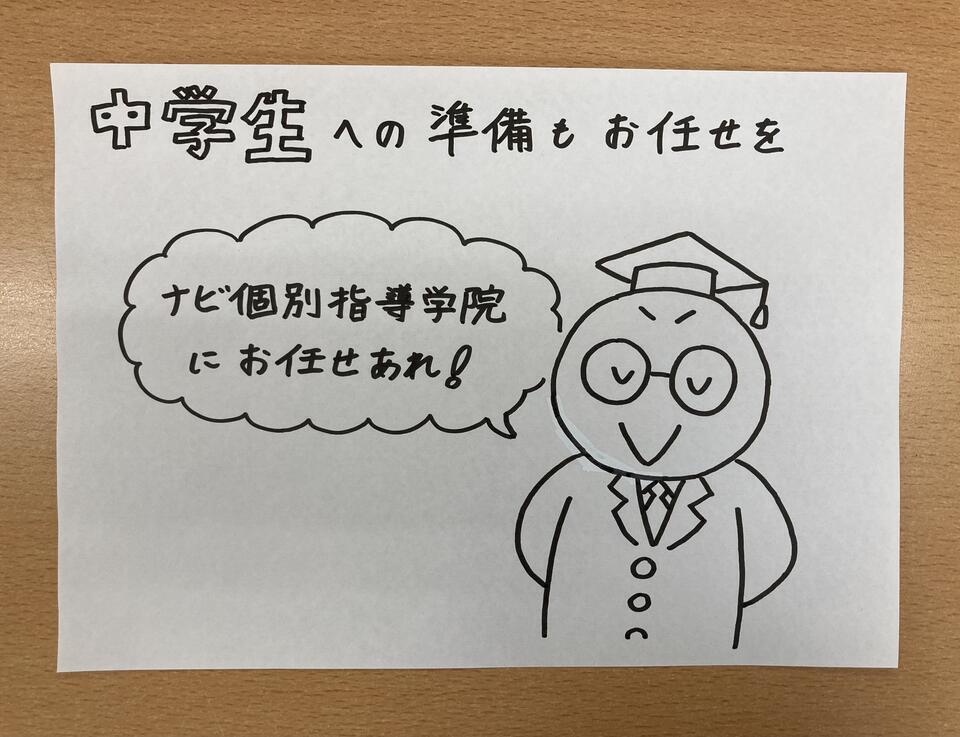 中学生への準備もお任せを
ナビ個別指導学院
にお任せあれ!